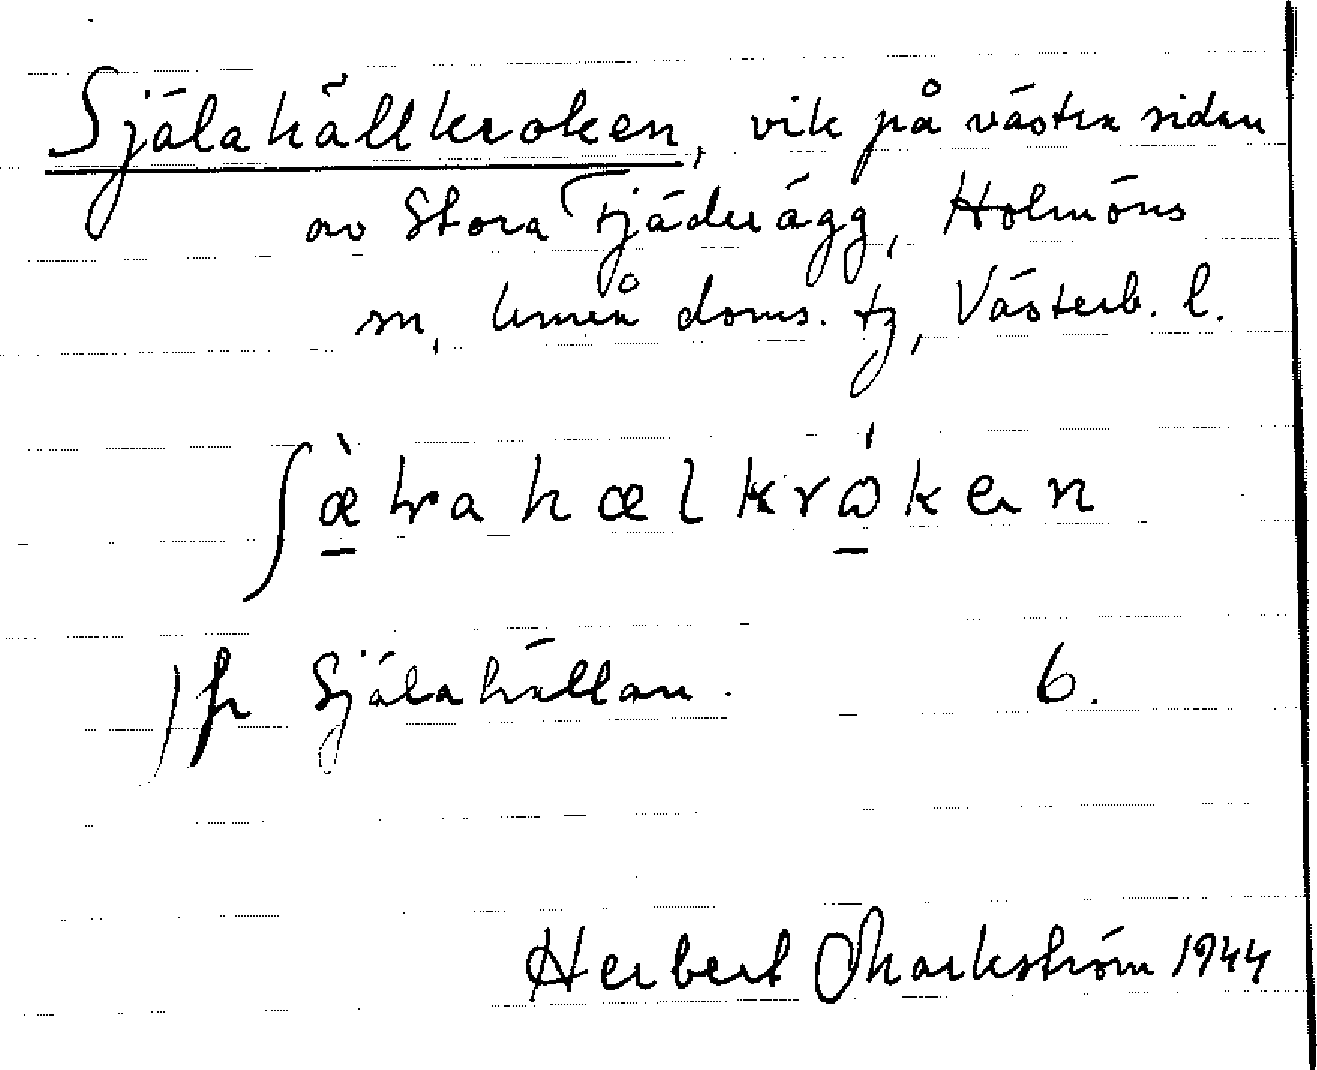 Själahällkroken, vik på västra sidan
av Stora Fjäderägg, Holmöns
sn, Umeå doms. tg, Västerb. l.
Jfr Själahällan. 6.
Herbert Markström 1944